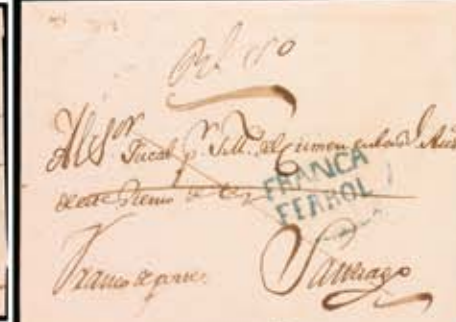 Al Sor Fiscal pr S.M. del Crimen en la Rl Auda
de este Reino de
FRANCA
FERROL
Franco de porte
Santiago